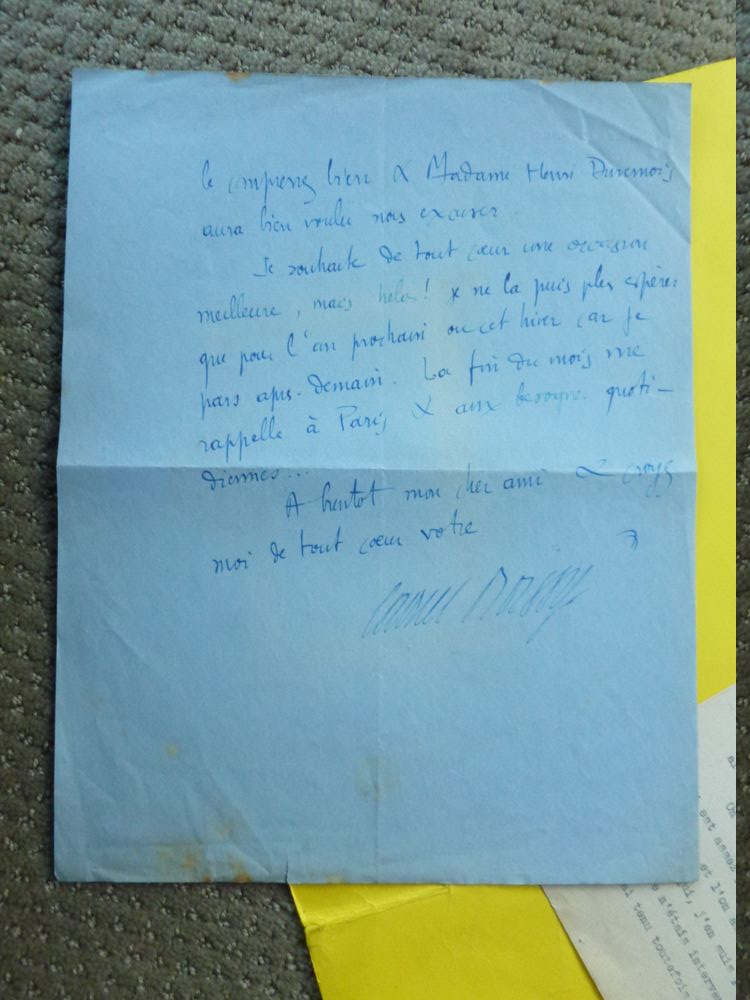 le comprenez bien & Madame Henri Duvernois
aura bien voulu nous excuser.
Je souhaite de tout cœur une occasion
meilleure, mais helas! je ne la puis plus espérer
que pour l'an prochain ou cet hiver car je
pars apres-demain. La fin du mois me
rappelle à Paris & aux besognes quoti-
diennes...
A bientot mon cher ami & croyez
moi de tout coeur votre
est assez
et l'on a
j'en suis
n'étais interve
tenu toutefois